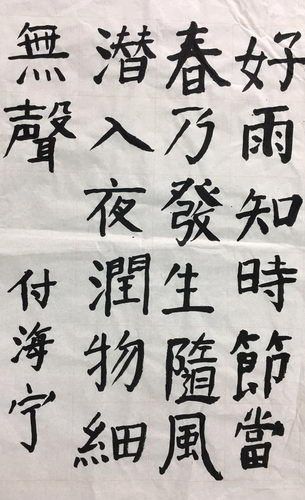 好雨知時節當
春乃發生隨風
潛入夜潤物細
無聲 付海宁